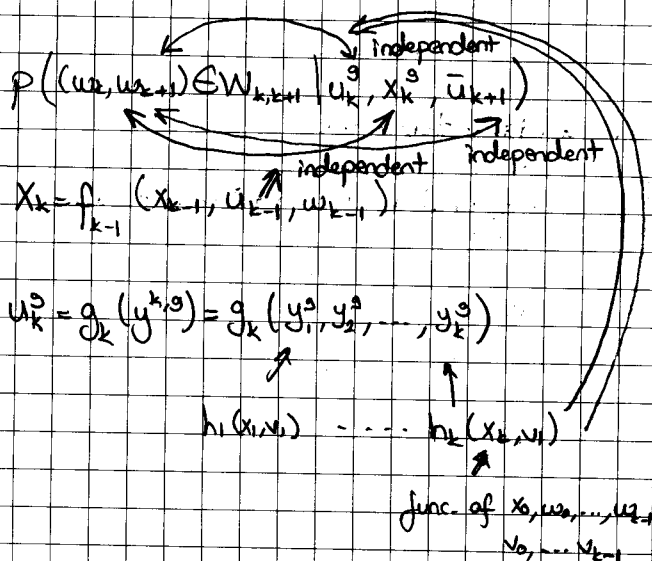 independent
p((w_k, w_{k+1}) ∈ W_{k,k+1} | u_k^g, x_k^g, ū_{k+1})
independent independent
x_k = f_{k-1} (x_{k-1}, u_{k-1}, w_{k-1})
u_k^g = g_k(y^{k,g}) = g_k(y_1^g, y_2^g, ..., y_k^g)
h_1(x_1,v_1) ..... h_k(x_k,v_1)
func. of x_0, w_0, ..., w_{k-1}
v_0, ... v_{k-1}